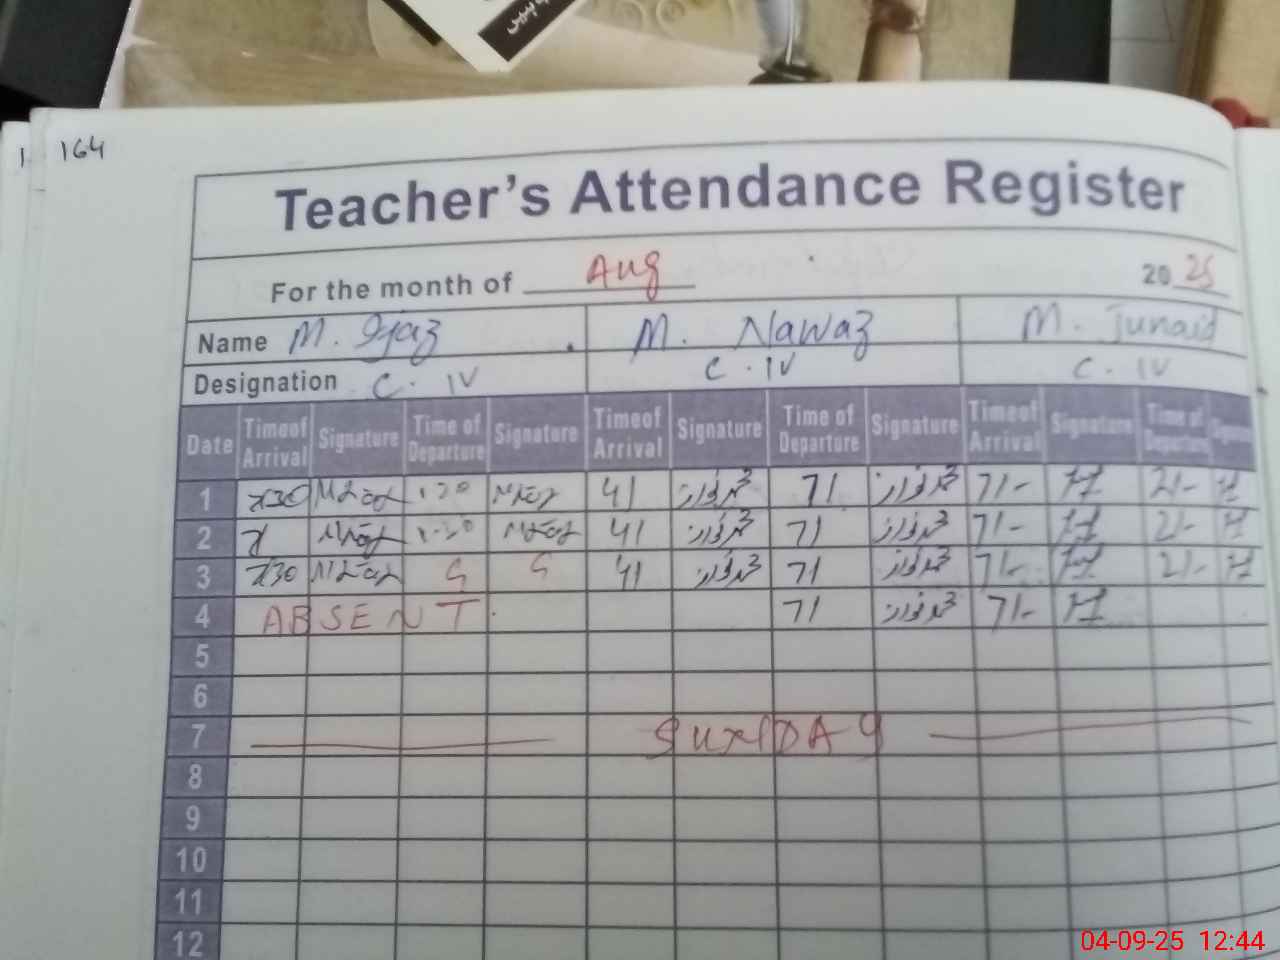 1 164
Teacher's Attendance Register
For the month of Aug 2025
Name M. Ijaz M. Nawaz M. Junaid
Designation C. IV C. IV C. IV
Date Timeof Arrival Signature Time of Departure Signature Timeof Arrival Signature Time of Departure Signature Timeof Arrival Signature Time of Departure Signature
1 41 محمد نواز 71 محمد نواز 71- 21-
2 41 محمد نواز 71 محمد نواز 71- 21-
3 41 محمد نواز 71 محمد نواز 71- 21-
4 ABSENT 71 محمد نواز 71-
5
6
7 SUNDAY
8
9
10
11
12
04-09-25 12:44